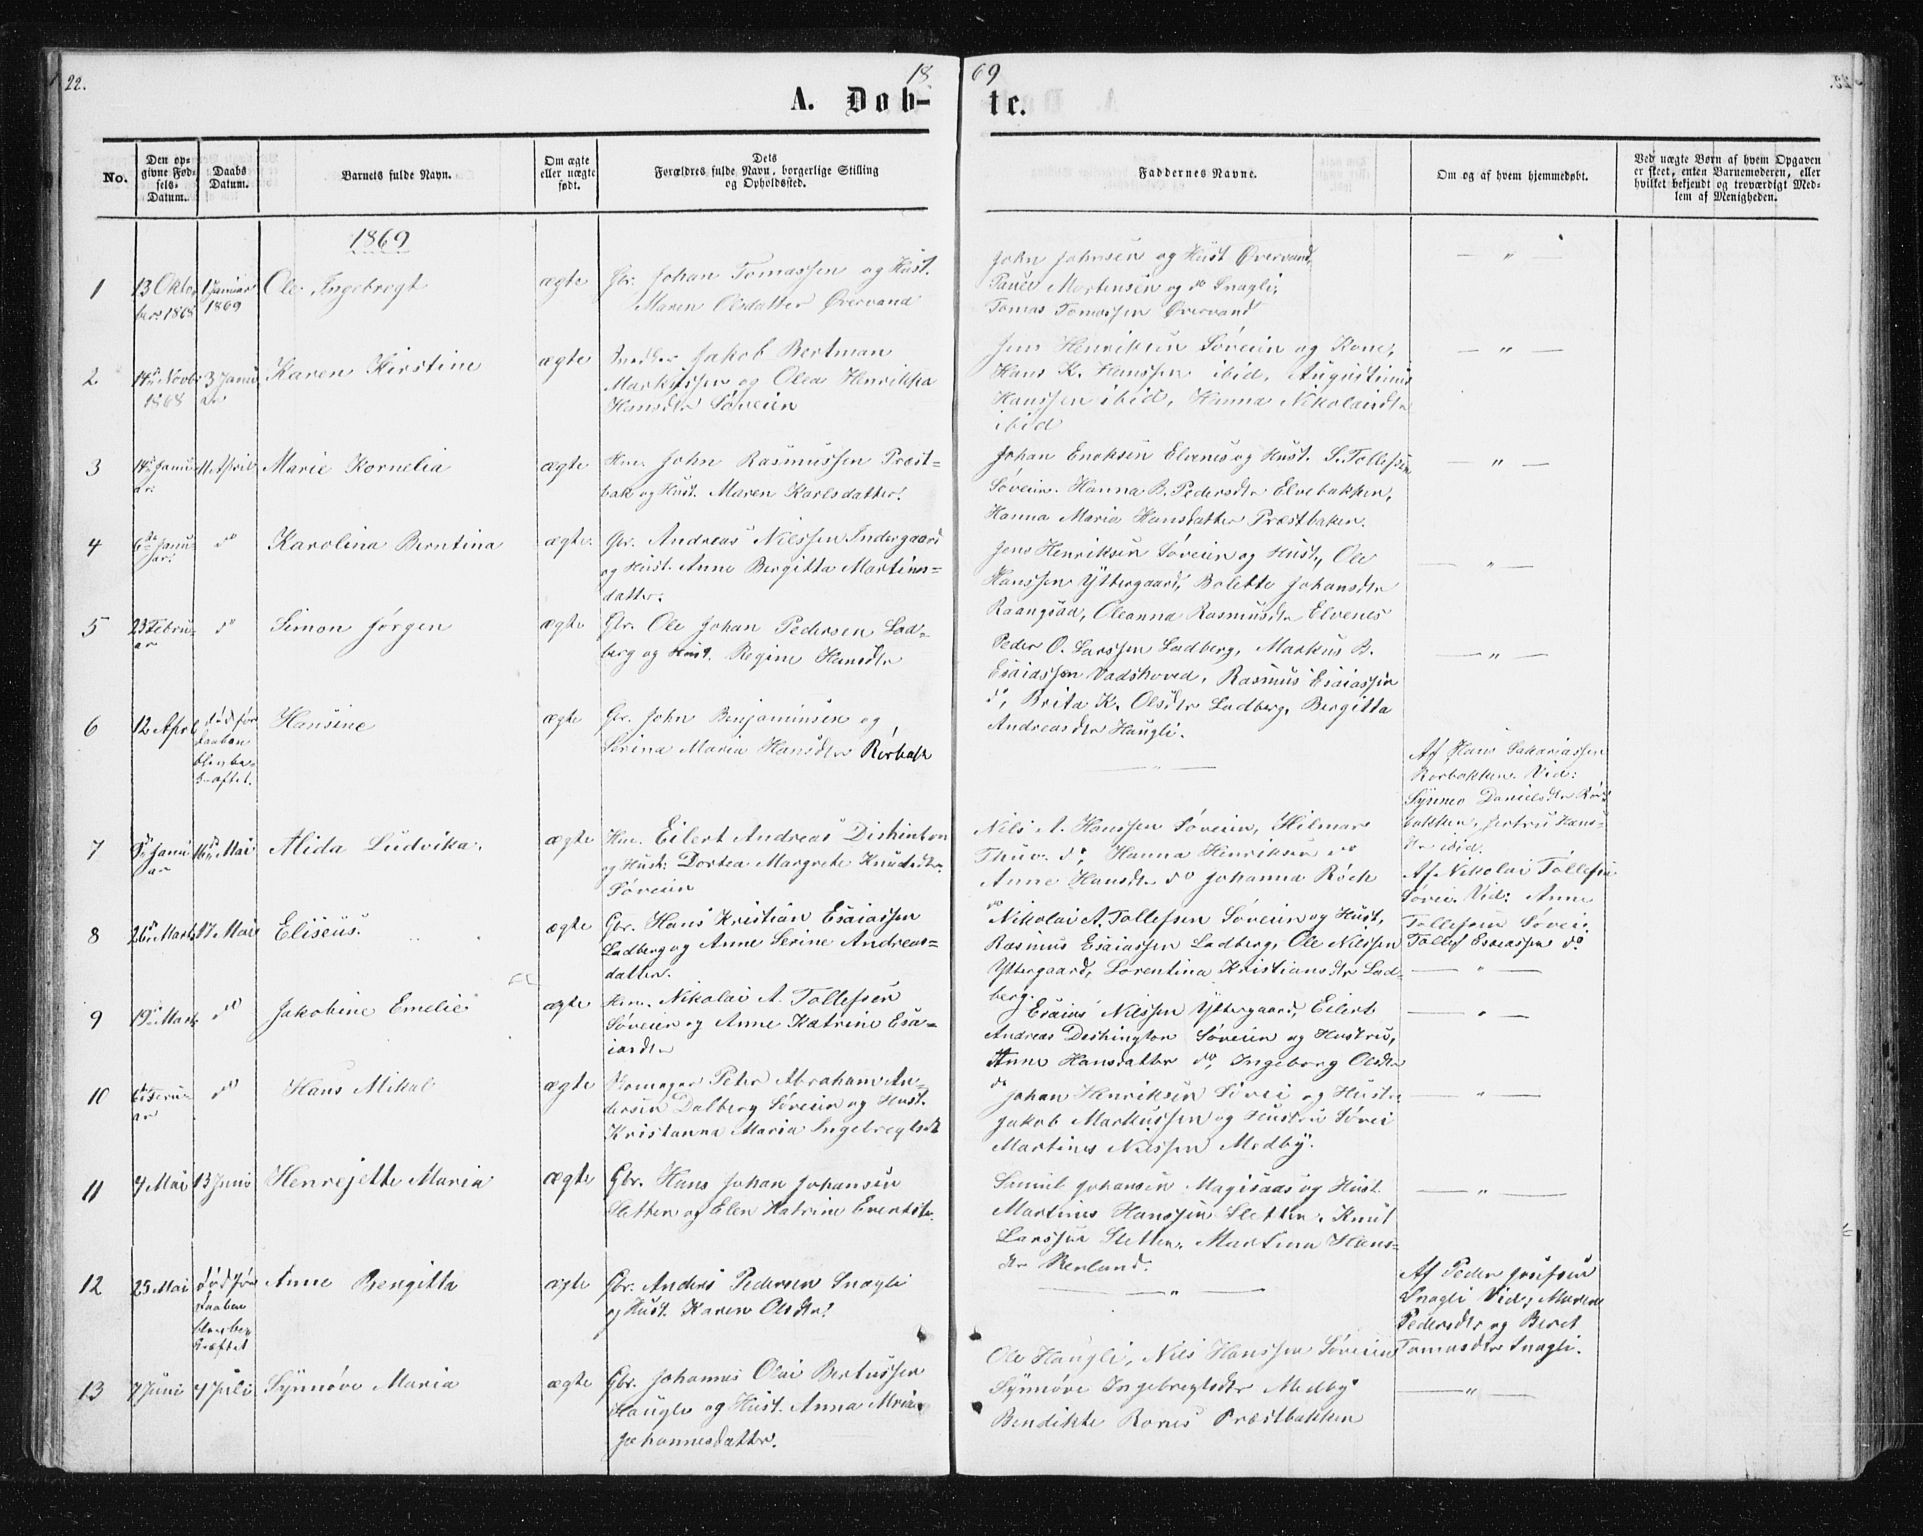 22.
18
69
A. Døb-
te.
No.
Den op-
givne Fød-
sels-
Datum.
Daabs
Datum.
Barnets fulde Navn.
Om ægte
eller uægte
født.
Dets
Forældres fulde Navn, borgerlige Stilling
og Opholdssted.
Faddernes Navne.
Om og af hvem hjemmedøbt.
Ved uægte Børn af hvem Opgaven
er skeet, enten Barnemoderen, eller
hvilket bekjendt og troværdigt Med-
lem af Menigheden.
1869
1
13 Okto-
ber 1868
1 Januar
1869
Ole Ingebregt
ægte
Gbr. Johan Tomassen og Hust.
Maren Olsdatter Øvervand
John Johnsen og Hust Øvervand,
Paul Mortensen og do Snagli,
Tomas Tomassen Øvervand
— " —
2
14de Novbr
1868
3 Janu
ar
Karen Kirstine
ægte
Jakob Bertman
Markussen og Olea Henrikka
Hansdtr Søveien
Jens Henriksen Søveien og Kone,
Hans K. Hanssen ibid, Augustinus
Hanssen ibid, Hanna Nikolaidtr
ibid
— " —
3
14de Janu-
ar
11 April
Marie Kornelia
ægte
Hm. John Rasmussen Præst-
bak og Hust. Maren Karlsdatter.
Johan Enoksen Elvenes og Hust. S. Tollefsen
Søveien. Hanna B. Pedersdtr Elvebakken,
Hanna Maria Hansdatter Præstbaken.
— " —
4
6te Janu-
ar.
do
Karolina Berntina
ægte.
Gbr. Andreas Nilssen Indergaard
og Hust. Anne Bergitta Martines-
datter.
Jens Henriksen Søveien og Hust, Ole
Hanssen Yttergaard, Bolette Johansdtr
Raangsad, Oleanna Rasmusdtr Elvenes
— " —
5
23 Febru-
ar
do
Simon Jørgen
ægte
Gbr. Ole Johan Pedersen Lad-
berg og Hust. Regine Hansdtr
Peder O. Larssen Ladberg, Markus B.
Esaiassen Vadshoved, Rasmus Esaiassen
do, Brita K. Olsdtr Ladberg, Bergitta
Andreasdtr Haugli.
— " —
6
12 April
død før
Daaben
blev be-
kræftet.
Hansine
ægte
Gbr. John Benjaminsen og
Sørina Maria Hansdtr Rørbak
— " —
Af Hans Sakariassen
Rørbakken. Vid:
Synneo Danielsdtr Rør-
bakken, Jertru Hans-
dtr ibid.
7
8de Janu
ar
16de Mai
Alida Ludvika.
ægte
Hm. Eilert Andreas Dishinton
og Hust: Dortea Margrete Knudsdtr.
Søveien
Nils A. Hanssen Søveien, Hilmar
Thuv. do, Hanna Henriksen do
Anne Hansdtr do Johanna Röch
do
Af Nikolai Tollefsen
Søvei. Vid: Anne
Tollefsen Søvei.
Tollef Esaiassen do
8
26de Marts
17 Mai
Eliseus.
ægte
Gbr. Hans Kristian Esaiassen
Ladberg og Anne Serine Andreas-
datter.
Nikolai A. Tollefsen Søveien og Hust,
Rasmus Esaiassen Ladberg, Ole Nilssen
Yttergaard, Lorentina Kristiansdtr Lad-
berg.
— " —
9
19de Marts
do
Jakobine Emelie
ægte
Hm. Nikolai A. Tollefsen
Søveien og Anne Katrine Esa-
iasdtr
Esaias Nilssen Yttergaard, Eilert
Andreas Deshington Søveien og Hustru,
Anne Hansdatter do, Ingeborg Olsdtr
do
— " —
10
6te Feru-
ar
do
Hans Mikal
ægte
Skomager Peter Abraham An-
dersen Dalberg Søveien og Hust.
Kristanna Maria Ingebregtsdt
Johan Henriksen Søvei og Hustr
Jakob Markussen og Hustru Søvei
Martines Nilssen Medby.
— " —
11
4 Mai
13 Juni
Henrejette Maria
ægte
Gbr. Hans Johan Johansen
Sletten og Elen Katrine Evertsdtr.
Samuel Johansen Magisaas og Hust
Martines Hanssen Sletten, Knut
Larssen Sletten, Martina Hans-
dtr Renland.
— " —
12
25 Mai
død før
Daaben
blev be-
kræftet
Anne Bergitta
ægte
Gbr. Anders Pedersen Snagli
og Hust. Karen Olsdtr.
— " —
Af Peder Josefsen
Snagli Vid, Maren
Pedersdtr og Beret
Tomasdtr Snagli.
13
7 Juni
4 Juli
Synnøve Maria
ægte
Gbr. Johannes Olai Bertussen
Haugli og Hust. Anna Maria
Johannesdatter.
Ole Haugli, Nils Hanssen Søveien
Synnøve Ingebregtsdtr Medby
Bendikte Rones Præstbakken
— " —